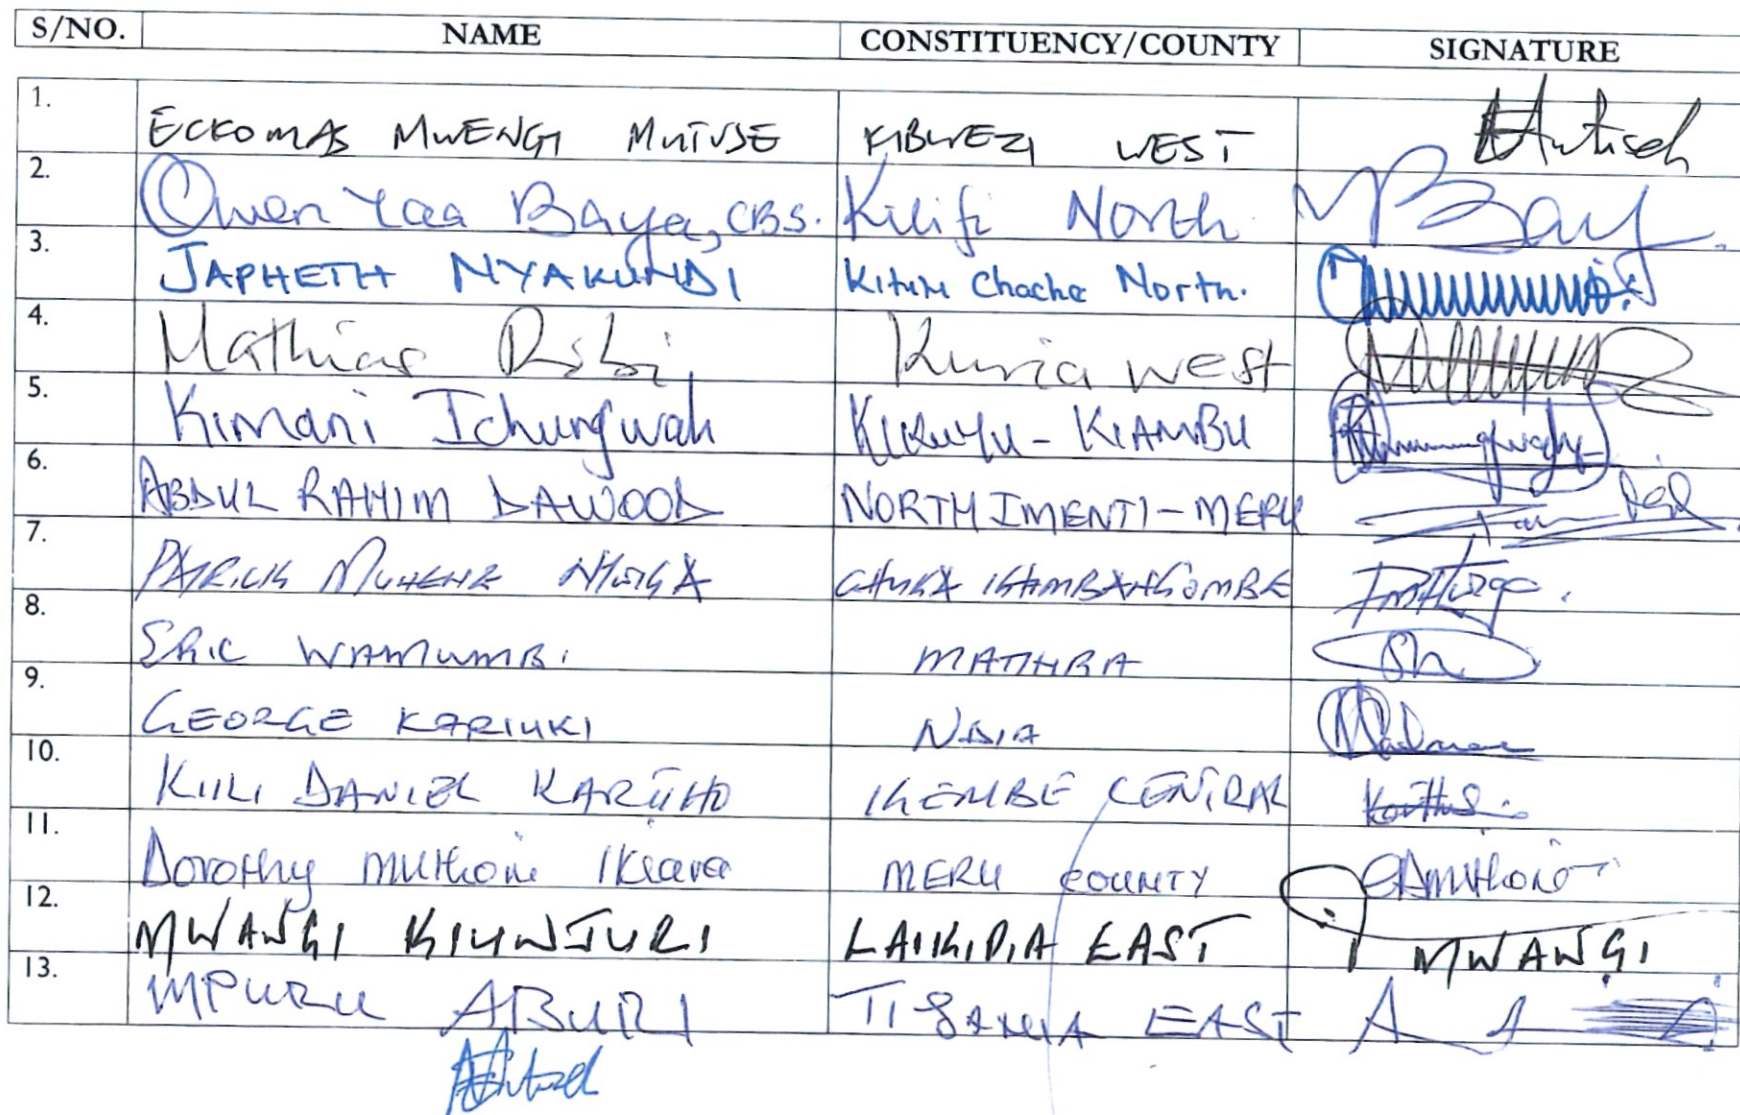 S/NO. NAME CONSTITUENCY/COUNTY SIGNATURE
1. ECKOMAS MWENGI MUTUSE KIBWEZI WEST
2. Owen Yaa Baya, CBS. Kilifi North Baya
3. JAPHETH NYAKUNDI Kitutu Chache North.
4. Mathias Robi Kuria west
5. Kimani Ichungwah KIKUYU - KIAMBU
6. ABDUL RAHIM DAWOOD NORTH IMENTI - MERU
7. PATRICK MUNENE NTWIGA CHUKA IGAMBANGOMBE
8. ERIC WAMUMBI MATHIRA
9. GEORGE KARIUKI NDIA
10. KIILI DANIEL KARITHO IGEMBE CENTRAL
11. Dorothy Muthoni Ikiara MERU COUNTY
12. MWANGI KIUNJURI LAIKIPIA EAST MWANGI
13. MPURU ABURI TIGANIA EAST